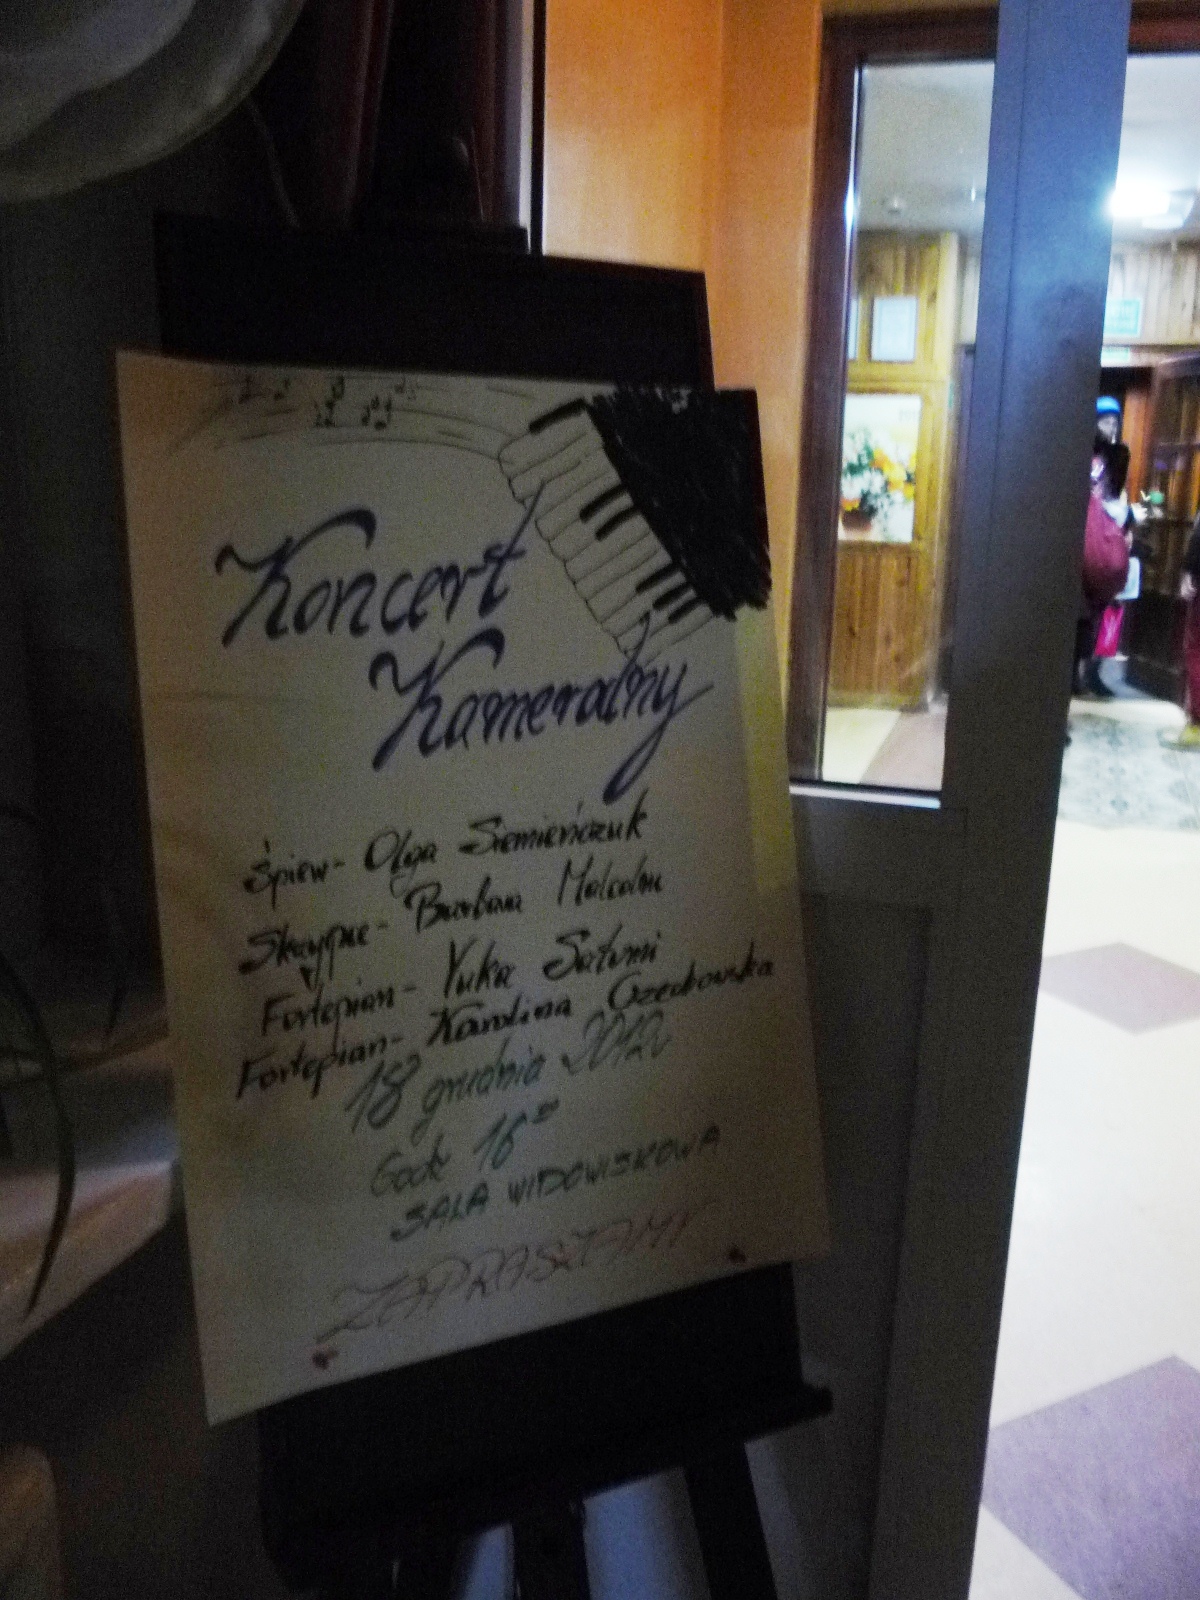 Koncert
Kameralny
Śpiew- Olga Siemieńczuk
Skrzypce- Barbara Malcolm
Fortepian- Yuka Satumi
Fortepian- Karolina
18 grudnia 2012
Godz 16⁰⁰
SALA WIDOWISKOWA
ZAPRASZAMY